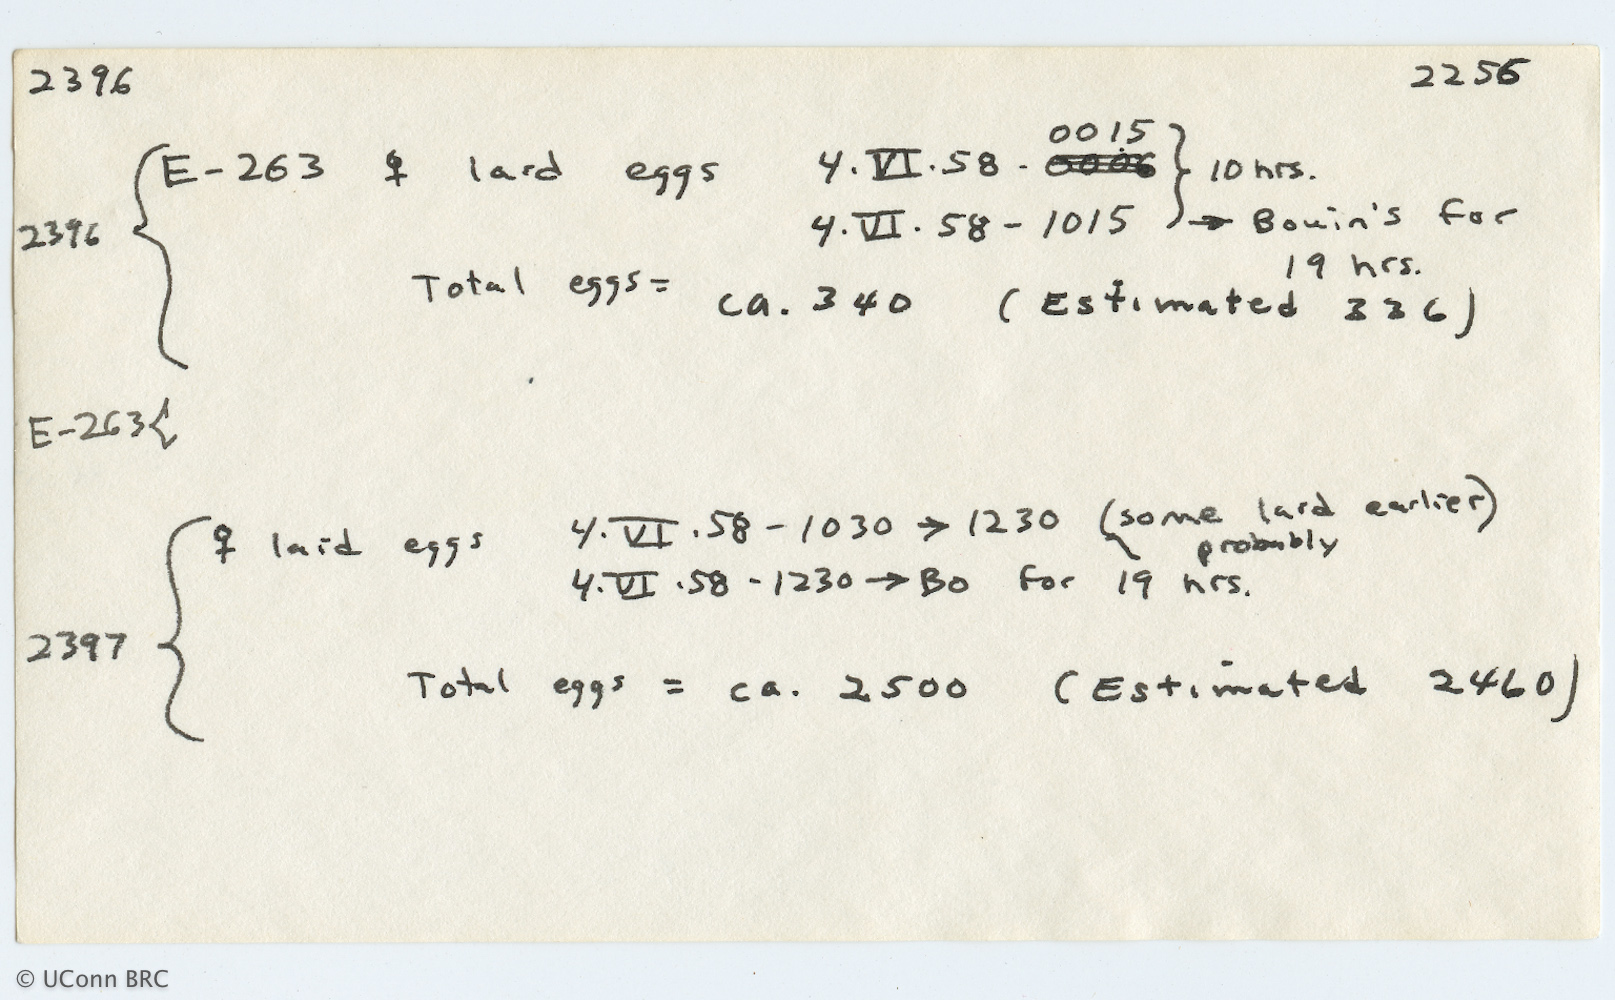 2396 2256
E-263 ♀ laid eggs 4.VI.58 - 0015 } 10 hrs.
2396 { 4.VI.58 - 1015 → Bouin's for
19 hrs.
Total eggs = ca. 340 (Estimated 336)
E-263 {
♀ laid eggs 4.VI.58 - 1030 → 1230 (some laid earlier)
probably
4.VI.58 - 1230 → Bo for 19 hrs.
2397 {
Total eggs = ca. 2500 (Estimated 2460)
© UConn BRC